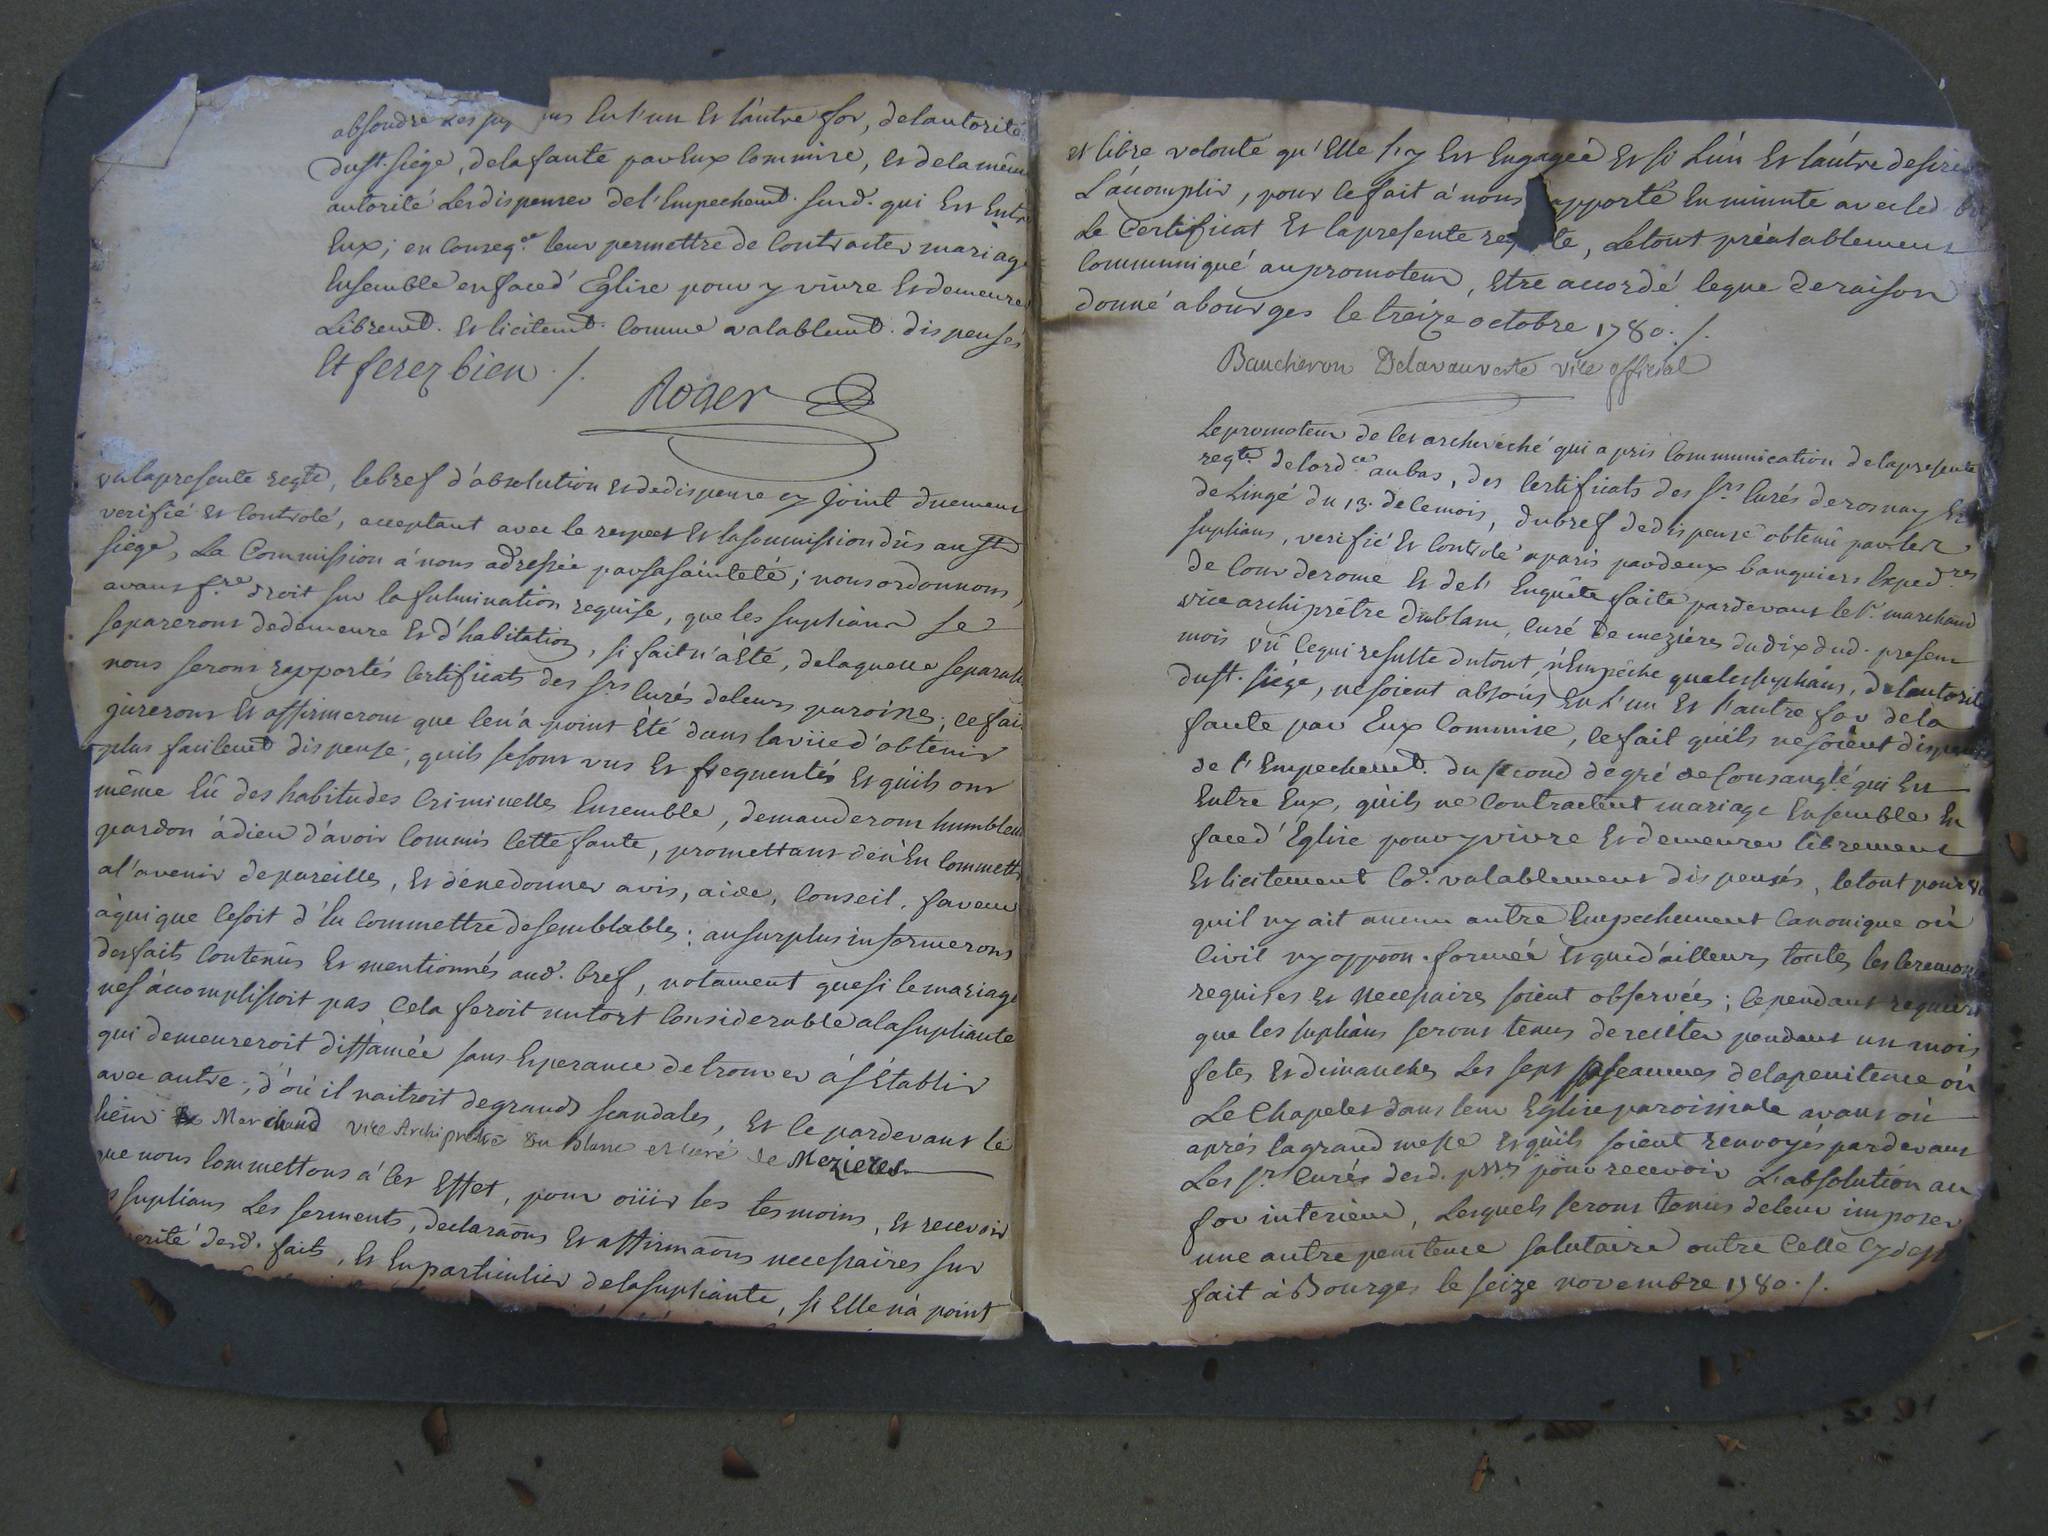 absoudre les sup ns En l'un Et l'autre for, de lautorité
du st. siége, de la faute par Eux Commise, et de la même
autorité Les dispenser de l'Empechemt. susd. qui Est Entre
Eux; en Conseq.ce leur permettre de Contracter mariage
Ensemble en face d'Eglise pour y vivre Et demeurer
Libremt. Et licitemt. Comme valablemt. dispensés
Et ferez bien ./.
Roger
vu la presente reqte, le bref d'absolution et de dispense cy joint duement
verifié et Controlé, acceptant avec le respect Et la soumission dûs au st
siége, La Commission á nous adressée par sa sainteté; nous ordonnons,
avant fre. droit sur la fulmination requise, que les suplians se
separerons de demeure Et d'habitation, si fait n'a Eté, de laquelle separati
nous serons rapportés Certificats des srs Curés de leurs paroisses; ce fait
jurerons Et affirmerons que ce n'a point Eté dans la vüe d'obtenir
plus facilemt dispense, quils se sont vus Et frequentés Et quils ont
même Eû des habitudes Criminelles Ensemble, demanderons humblem
pardon à dieu d'avoir Commis Cette faute, promettans de n'En Commettr
a l'avenir de pareilles, Et de ne donner avis, aide, Conseil, faveur
à qui que Ce soit d'En Commettre de semblables: au surplus informerons
des faits Contenûs Et mentionnés aud. bref, notament que si le mariage
ne s'acomplissoit pas Cela feroit un tort Considerable a la supliante
qui demeureroit diffamée sans Esperance de trouver à s'Etablir
avec autre, d'où il naitroit de grands scandales, Et ce pardevant le
sieur Marchand vice Archiprêtre du blanc et curé de Mezieres
que nous Commettons á Cet Effet, pour oüir les tesmoins, Et recevoir
suplians Les serments, declarâons Et affirmâons necessaires sur
verité desd. faits, Et En particulier de la supliante, si Elle n'a point
et libre volonté qu'Elle s'y Est Engagée Et si L'un Et l'autre desire
L'acomplir, pour le fait à nous apporté En minute avec led. bref
Le Certificat Et la presente requte, Le tout préalablement
Communiqué au promoteur, Etre accordé ce que de raison
donné a bourges le treize octobre 1780 ./.
Baucheron Delavauverte vice official
Le promoteur de Cet archeveché qui a pris Communication de la presente
reqte. de lord.ce au bas, des Certificats des srs Curés de rosnay Et
de Lingé du 13. de Ce mois, du bref de dispense obtenû par les
suplians, verifié Et Controlé a paris par deux banquiers Exped.res
de Cour de rome Et de l'Enquête faite pardevant le sr. marchand
vice archiprêtre du blanc, Curé de mezières du dix dud. present
mois vû Ce qui resulte du tout, n'Empêche que les suplians, de lautorité
du st. siége, ne soient absous En l'un Et l'autre for de la
faute par Eux Commise, ce fait qu'ils ne soient dispensés
de l'Empechemt. du second degré de Consang.té qui Est
Entre Eux, qu'ils ne Contractent mariage Ensemble En
face d'Eglise pour y vivre Et demeurer librement
Et licitement Co.e valablement dispensés, le tout pourvu
quil n'y ait aucun autre Empechement Canonique où
Civil ny oppoon. formée Et que d'ailleurs toutes les Ceremon
requises Et necessaires soient observées; Cependant requiers
que les suplians serons tenus de reciter pendant un mois
fetes Et dimanches Les sept pseaumes de la penitence où
Le Chapelet dans leur Eglise paroissiale avant où
aprés la grand messe Et qu'ils soient renvoyés pardevant
Les srs Curés desd. pssses pour recevoir L'absolution au
for interieur, Lesquels serons tenus de leur imposer
une autre penitence salutaire outre Celle Cy dess
fait à Bourges le seize novembre 1780 ./.